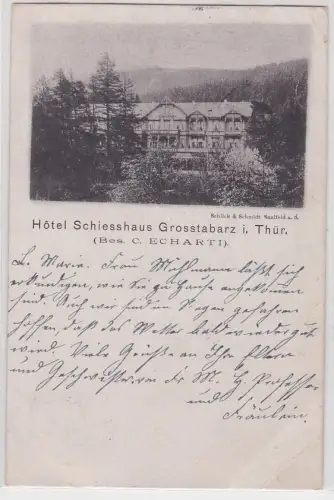 Schlick & Schmidt Saalfeld a. S.
Hôtel Schiesshaus Grosstabarz i. Thür.
(Bes. C. ECHARTI).
L. Maria. Frau Mohlmann läßt sich
erkundigen, wie Sie zu Hause angekommen
sind. Auch wir sind im Regen gefahren
hoffen, daß das Wetter bald wieder gut
wird. Viele Grüße an Ihre Eltern
und Geschwister von Fr M. H Professor
und
Fräulein.